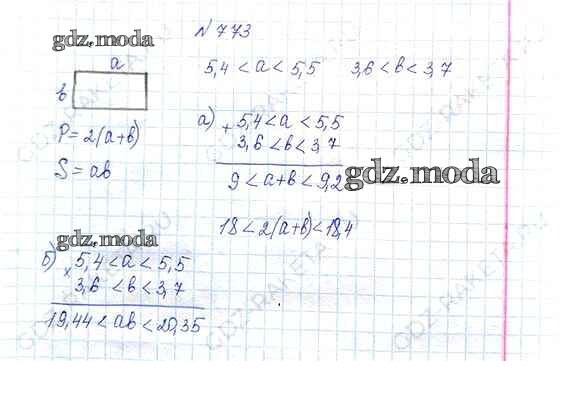 N 773
gdz.moda
a
5,4 < a < 5,5 3,6 < в < 3,7
в
P = 2(a+в)
S = aв
а) + 5,4 < a < 5,5
3,6 < в < 3,7
9 < a+в < 9,2
gdz.moda
18 < 2(a+в) < 18,4
gdz.moda
б) × 5,4 < a < 5,5
3,6 < в < 3,7
19,44 < aв < 20,35
GDZ-RAKETA.RU